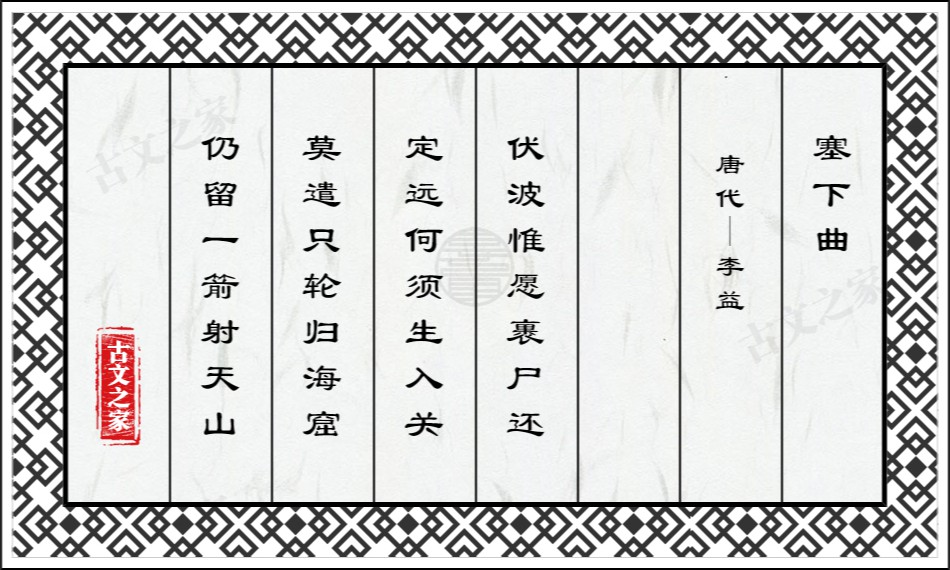 塞下曲
唐代—李益
伏波惟愿裹尸还
定远何须生入关
莫遣只轮归海窟
仍留一箭射天山
古文之家
古文之家
古文之家